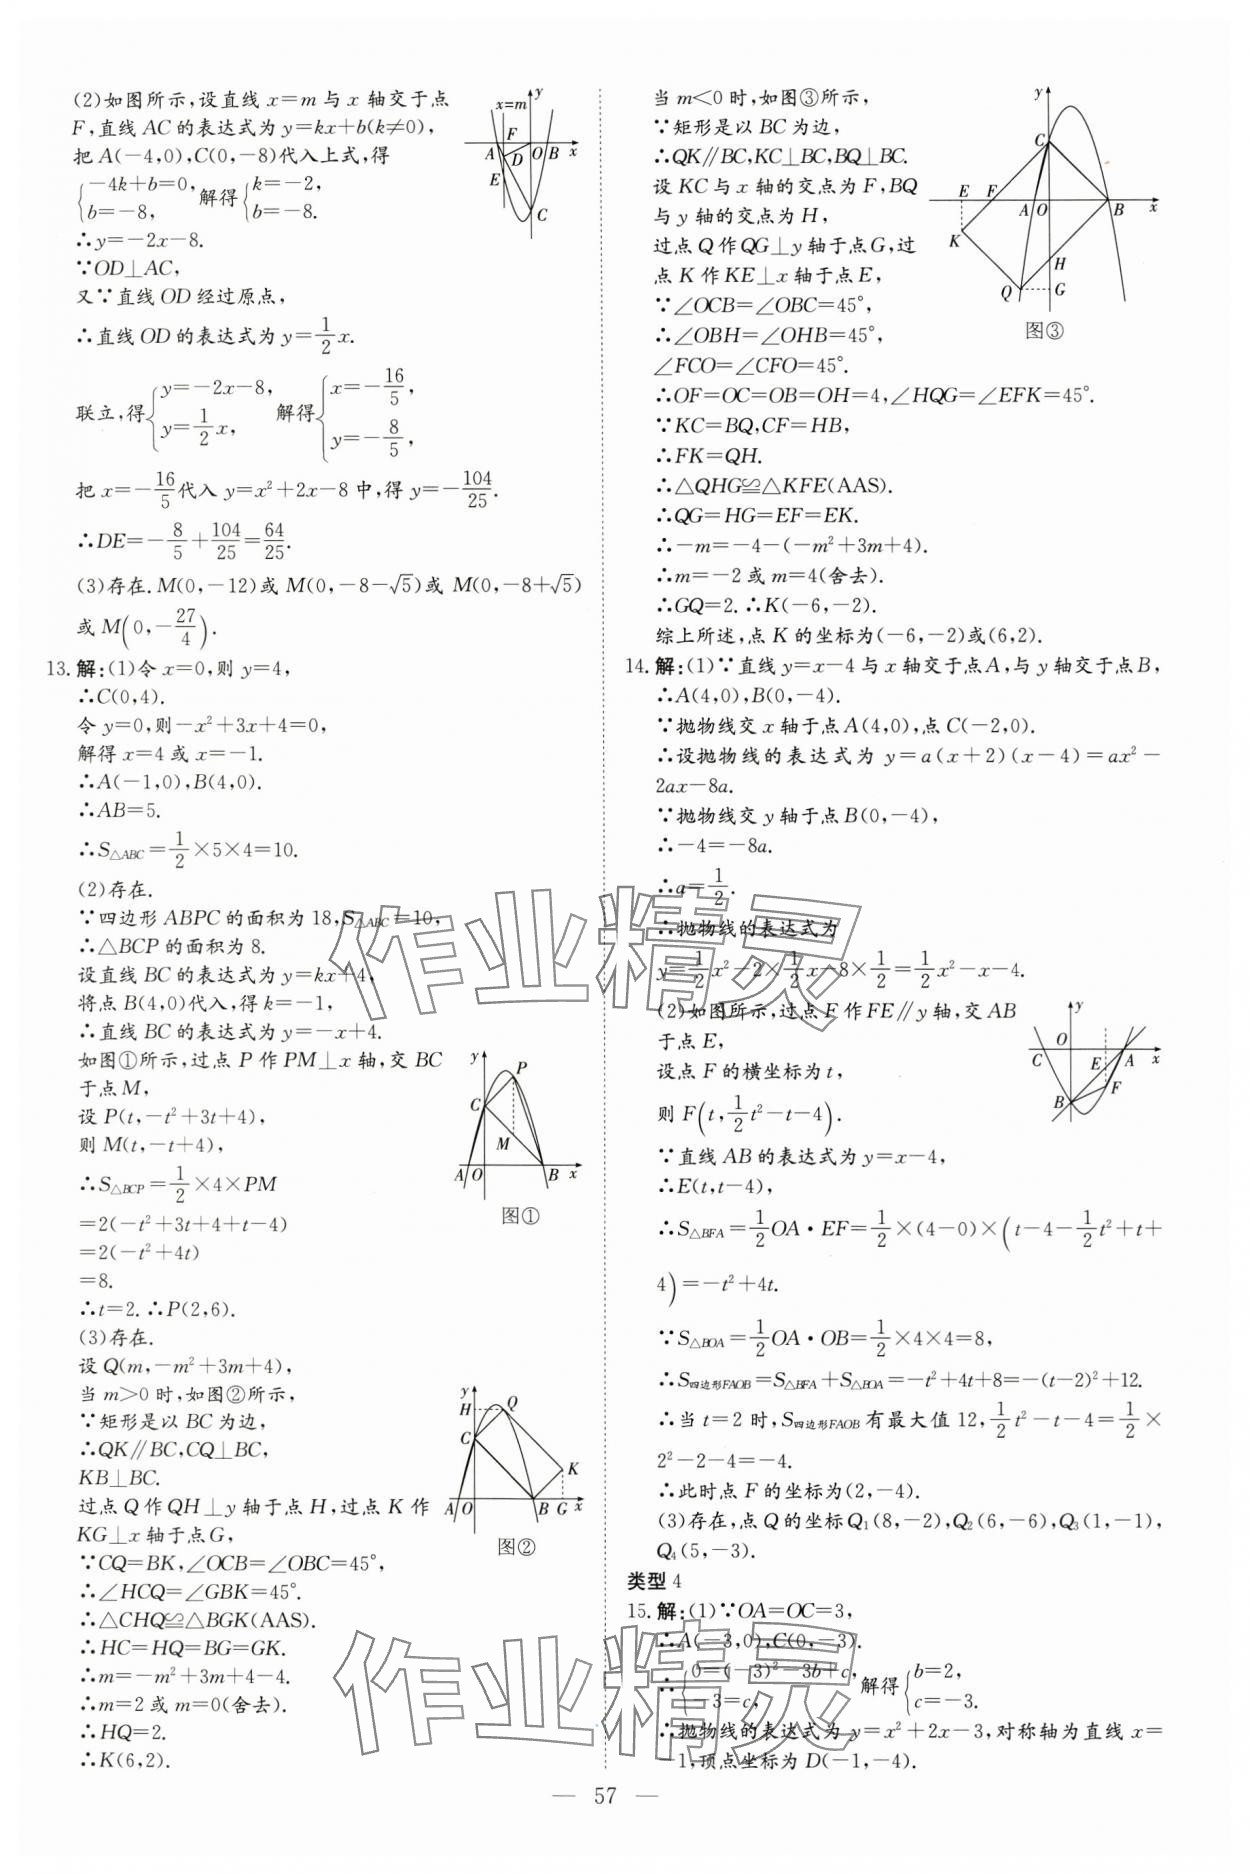 (2)如图所示,设直线 x=m 与 x 轴交于点
F,直线 AC 的表达式为 y=kx+b(k≠0),
把 A(-4,0),C(0,-8)代入上式,得
{-4k+b=0, b=-8, 解得{k=-2, b=-8.
∴y=-2x-8.
∵OD⊥AC,
又∵直线 OD 经过原点,
∴直线 OD 的表达式为 y=1/2 x.
联立,得{y=-2x-8, y=1/2 x, 解得{x=-16/5, y=-8/5,
把 x=-16/5代入 y=x²+2x-8 中,得 y=-104/25.
∴DE=-8/5+104/25=64/25.
(3)存在.M(0,-12)或 M(0,-8-√5)或 M(0,-8+√5)
或 M(0,-27/4).
x=m y F A D O B x E C
13.解:(1)令 x=0,则 y=4,
∴C(0,4).
令 y=0,则-x²+3x+4=0,
解得 x=4 或 x=-1.
∴A(-1,0),B(4,0).
∴AB=5.
∴S△ABC=1/2×5×4=10.
(2)存在.
∵四边形 ABPC 的面积为 18,S△ABC=10,
∴△BCP 的面积为 8.
设直线 BC 的表达式为 y=kx+4,
将点 B(4,0)代入,得 k=-1,
∴直线 BC 的表达式为 y=-x+4.
如图①所示,过点 P 作 PM⊥x 轴,交 BC
于点 M,
设 P(t,-t²+3t+4),
则 M(t,-t+4),
∴S△BCP=1/2×4×PM
=2(-t²+3t+4+t-4)
=2(-t²+4t)
=8.
∴t=2.∴P(2,6).
y P C M A O B x
图①
(3)存在.
设 Q(m,-m²+3m+4),
当 m>0 时,如图②所示,
∵矩形是以 BC 为边,
∴QK∥BC,CQ⊥BC,
KB⊥BC.
过点 Q 作 QH⊥y 轴于点 H,过点 K 作
KG⊥x 轴于点 G,
∵CQ=BK,∠OCB=∠OBC=45°,
∴∠HCQ=∠GBK=45°.
∴△CHQ≌△BGK(AAS).
∴HC=HQ=BG=GK.
∴m=-m²+3m+4-4.
∴m=2 或 m=0(舍去).
∴HQ=2.
∴K(6,2).
y H Q C K A O B G x
图②
当 m<0 时,如图③所示,
∵矩形是以 BC 为边,
∴QK∥BC,KC⊥BC,BQ⊥BC.
设 KC 与 x 轴的交点为 F,BQ
与 y 轴的交点为 H,
过点 Q 作 QG⊥y 轴于点 G,过
点 K 作 KE⊥x 轴于点 E,
∵∠OCB=∠OBC=45°,
∴∠OBH=∠OHB=45°,
∠FCO=∠CFO=45°.
∴OF=OC=OB=OH=4,∠HQG=∠EFK=45°.
∵KC=BQ,CF=HB,
∴FK=QH.
∴△QHG≌△KFE(AAS).
∴QG=HG=EF=EK.
∴-m=-4-(-m²+3m+4).
∴m=-2 或 m=4(舍去).
∴GQ=2.∴K(-6,-2).
综上所述,点 K 的坐标为(-6,-2)或(6,2).
y C E F A O B x K H Q G
图③
14.解:(1)∵直线 y=x-4 与 x 轴交于点 A,与 y 轴交于点 B,
∴A(4,0),B(0,-4).
∵抛物线交 x 轴于点 A(4,0),点 C(-2,0).
∴设抛物线的表达式为 y=a(x+2)(x-4)=ax²-
2ax-8a.
∵抛物线交 y 轴于点 B(0,-4),
∴-4=-8a.
∴a=1/2.
∴抛物线的表达式为
y=1/2 x²-2×1/2 x-8×1/2=1/2 x²-x-4.
(2)如图所示,过点 F 作 FE∥y 轴,交 AB
于点 E,
设点 F 的横坐标为 t,
则 F(t,1/2 t²-t-4).
∵直线 AB 的表达式为 y=x-4,
∴E(t,t-4),
y O C E A x F B
∴S△BFA=1/2 OA·EF=1/2×(4-0)×(t-4-1/2 t²+t+
4)=-t²+4t.
∵S△BOA=1/2 OA·OB=1/2×4×4=8,
∴S四边形FAOB=S△BFA+S△BOA=-t²+4t+8=-(t-2)²+12.
∴当 t=2 时,S四边形FAOB有最大值 12,1/2 t²-t-4=1/2×
2²-2-4=-4.
∴此时点 F 的坐标为(2,-4).
(3)存在,点 Q 的坐标 Q₁(8,-2),Q₂(6,-6),Q₃(1,-1),
Q₄(5,-3).
类型 4
15.解:(1)∵OA=OC=3,
∴A(-3,0),C(0,-3).
∴{0=(-3)²-3b+c, -3=c, 解得{b=2, c=-3.
∴抛物线的表达式为 y=x²+2x-3,对称轴为直线 x=
-1,顶点坐标为 D(-1,-4).
作业精灵
作业精灵
— 57 —